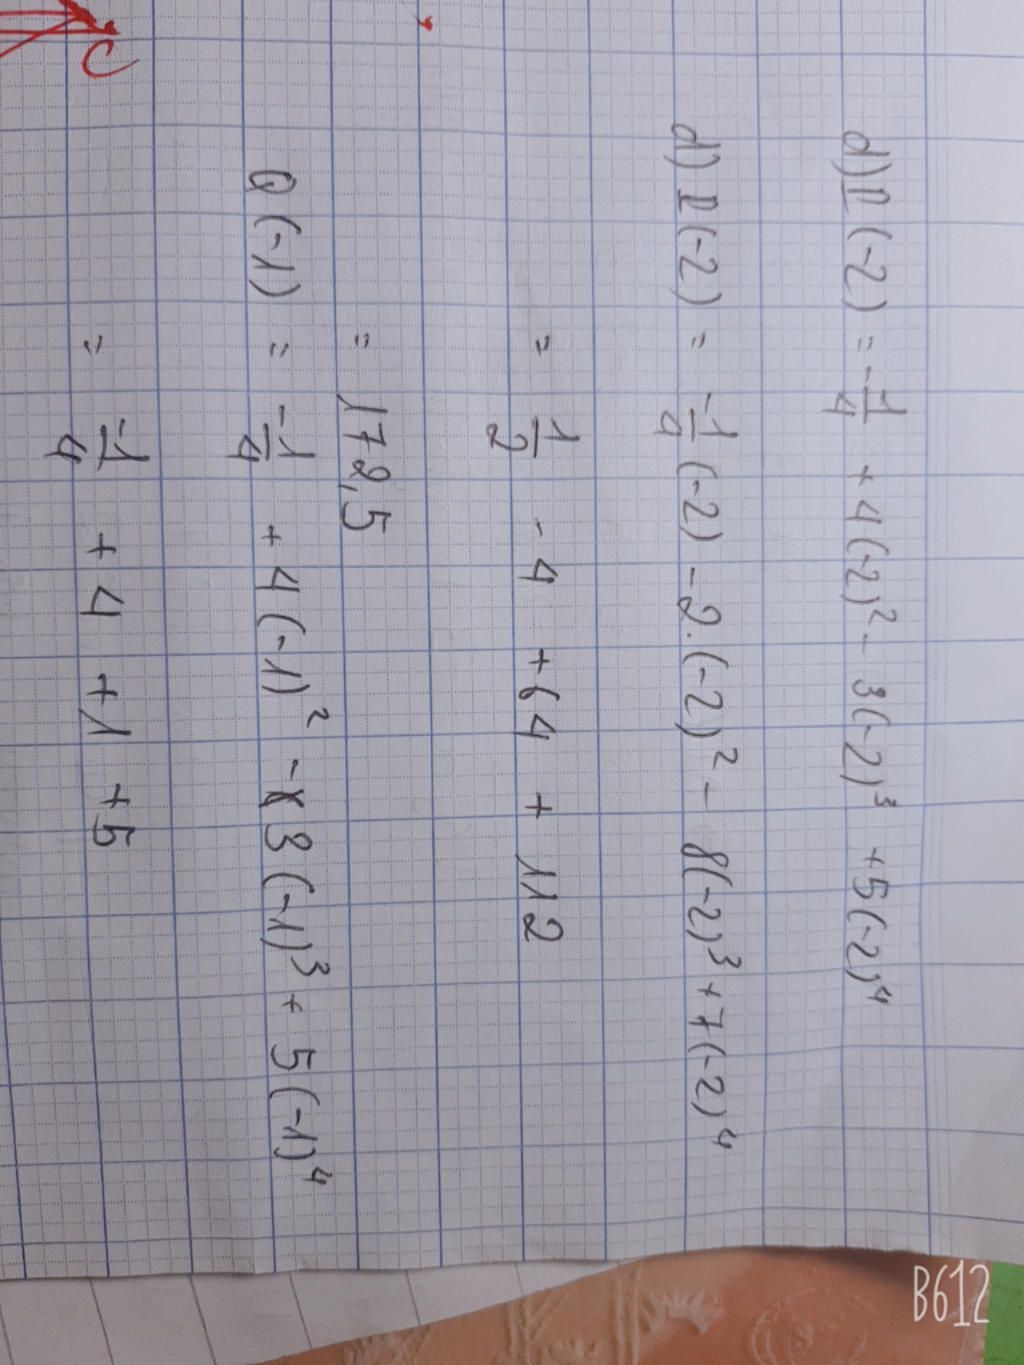 C
d) P(-2) = -1/4 + 4(-2)² - 3(-2)³ + 5(-2)⁴
d) P(-2) = -1/4 (-2) - 2.(-2)² - 8(-2)³ + 7(-2)⁴
= 1/2 - 4 + 64 + 112
= 172,5
Q(-1) = -1/4 + 4(-1)² - 3(-1)³ + 5(-1)⁴
= -1/4 + 4 + 1 + 5
B612